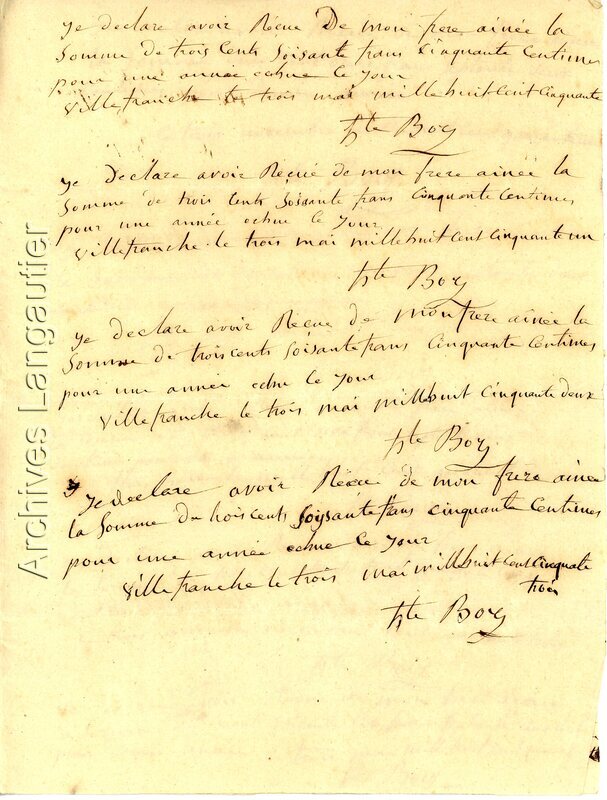 ye declare avoir Récue De mon frere ainée la
Somme de trois Cents Soisante frans Cinquante Centimes
pour une année echue Ce Jour
Villefranche le trois mai mille huit Cent Cinquante
hte Boy
ye Declare avoir Récue de mon frere ainée la
Somme de trois Cents Soisante frans Cinquante Centimes
pour une année echue Ce Jour
Villefranche le trois mai mille huit Cent Cinquante un
hte Boy
ye declare avoir Récue de mon frere ainée la
Somme de trois cents Soisante frans Cinquante Centimes
pour une année echue Ce Jour
Villefranche le trois mai mille huit Cinquante deux
hte Boy
ye declare avoir Récue de mon frere ainée
la Somme de trois cents Soisante frans Cinquante Centimes
pour une année echue Ce Jour
Villefranche le trois mai mille huit Cent Cinquate
trois
hte Boy
Archives Langautier